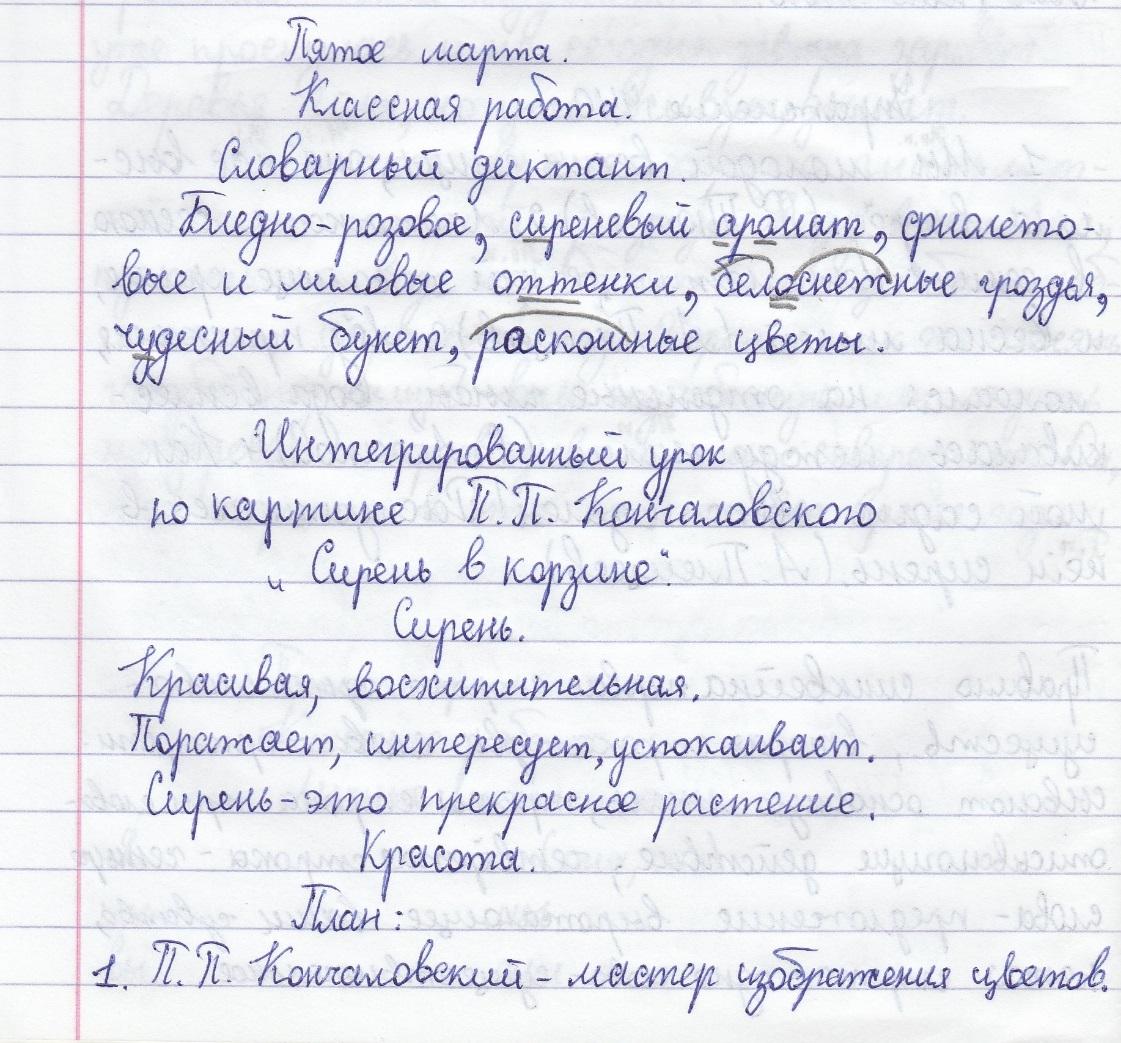 Пятое марта.
Классная работа.
Словарный диктант.
Бледно-розовое, сиреневый аромат, фиолето-
вые и лиловые оттенки, белоснежные гроздья,
чудесный букет, раскошные цветы.
Интегрированный урок
по картине П.П. Кончаловского
„Сирень в корзине".
Сирень.
Красивая, восхитительная.
Поражает, интересует, успокаивает.
Сирень-это прекрасное растение.
Красота.
План:
1. П.П. Кончаловский - мастер изображения цветов.